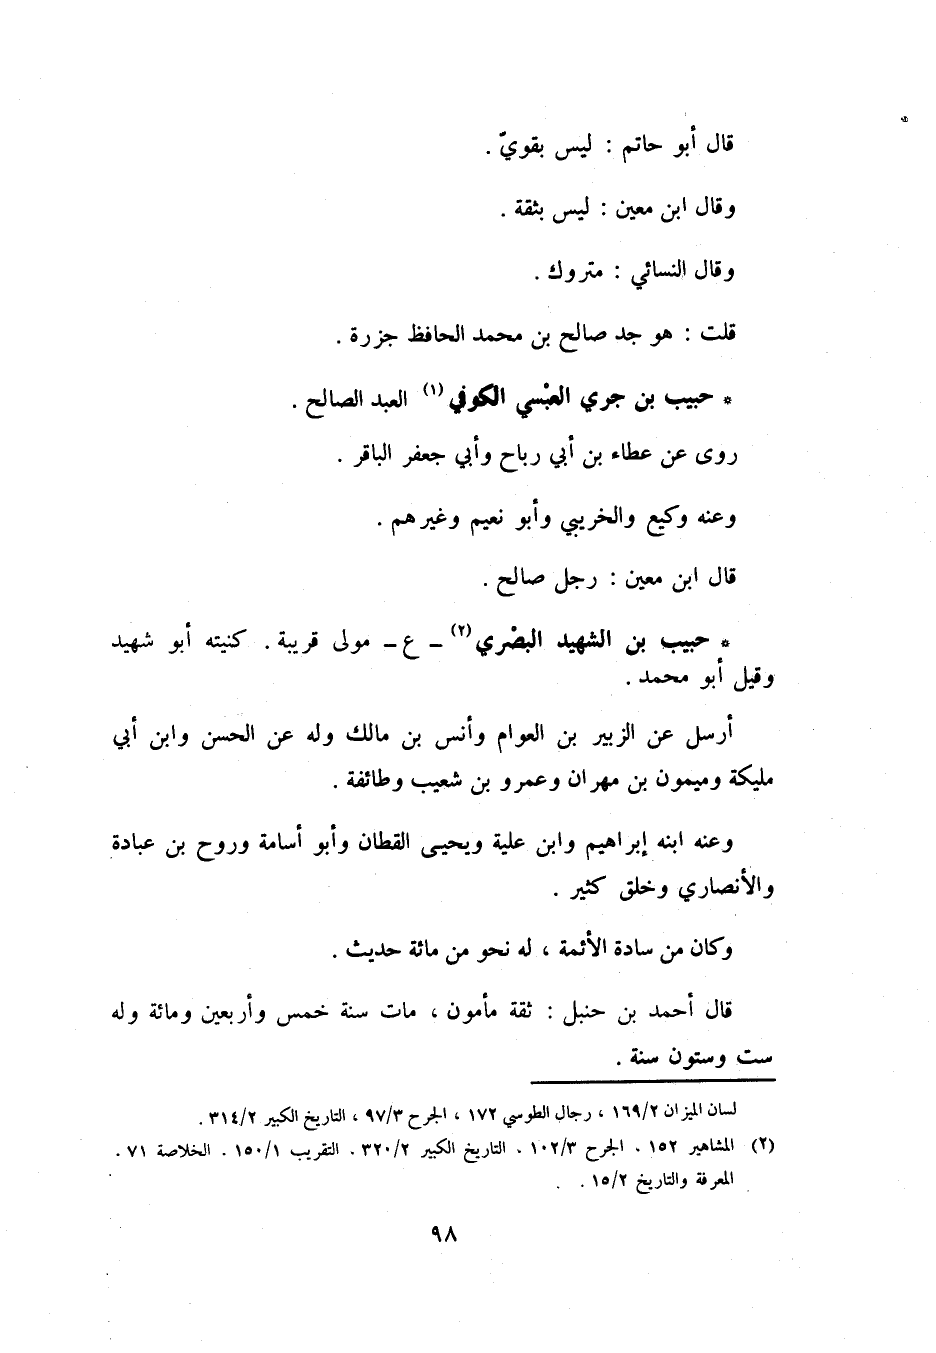 قال أبو حاتم : ليس بقويّ .
وقال ابن معين : ليس بثقة .
وقال النسائي : متروك .
قلت : هو جد صالح بن محمد الحافظ جزرة .
* حبيب بن جري العبْسي الكوفي (١) العبد الصالح .
روى عن عطاء بن أبي رباح وأبي جعفر الباقر .
وعنه وكيع والخريبي وأبو نعيم وغيرهم .
قال ابن معين : رجل صالح .
* حبيب بن الشهيد البصْري (٢) ـ ع ـ مولى قريبة . كنيته أبو شهيد
وقيل أبو محمد .
أرسل عن الزبير بن العوام وأنس بن مالك وله عن الحسن وابن أبي
مليكة وميمون بن مهران وعمرو بن شعيب وطائفة .
وعنه ابنه إبراهيم وابن علية ويحيى القطان وأبو أسامة وروح بن عبادة
والأنصاري وخلق كثير .
وكان من سادة الأئمة ، له نحو من مائة حديث .
قال أحمد بن حنبل : ثقة مأمون ، مات سنة خمس وأربعين ومائة وله
ست وستون سنة .
لسان الميزان ١٦٩/٢ ، رجال الطوسي ١٧٢ ، الجرح ٩٧/٣ ، التاريخ الكبير ٣١٤/٢ .
(٢) المشاهير ١٥٢ . الجرح ١٠٢/٣ . التاريخ الكبير ٣٢٠/٢ . التقريب ١٥٠/١ . الخلاصة ٧١ .
المعرفة والتاريخ ١٥/٢ .
٩٨